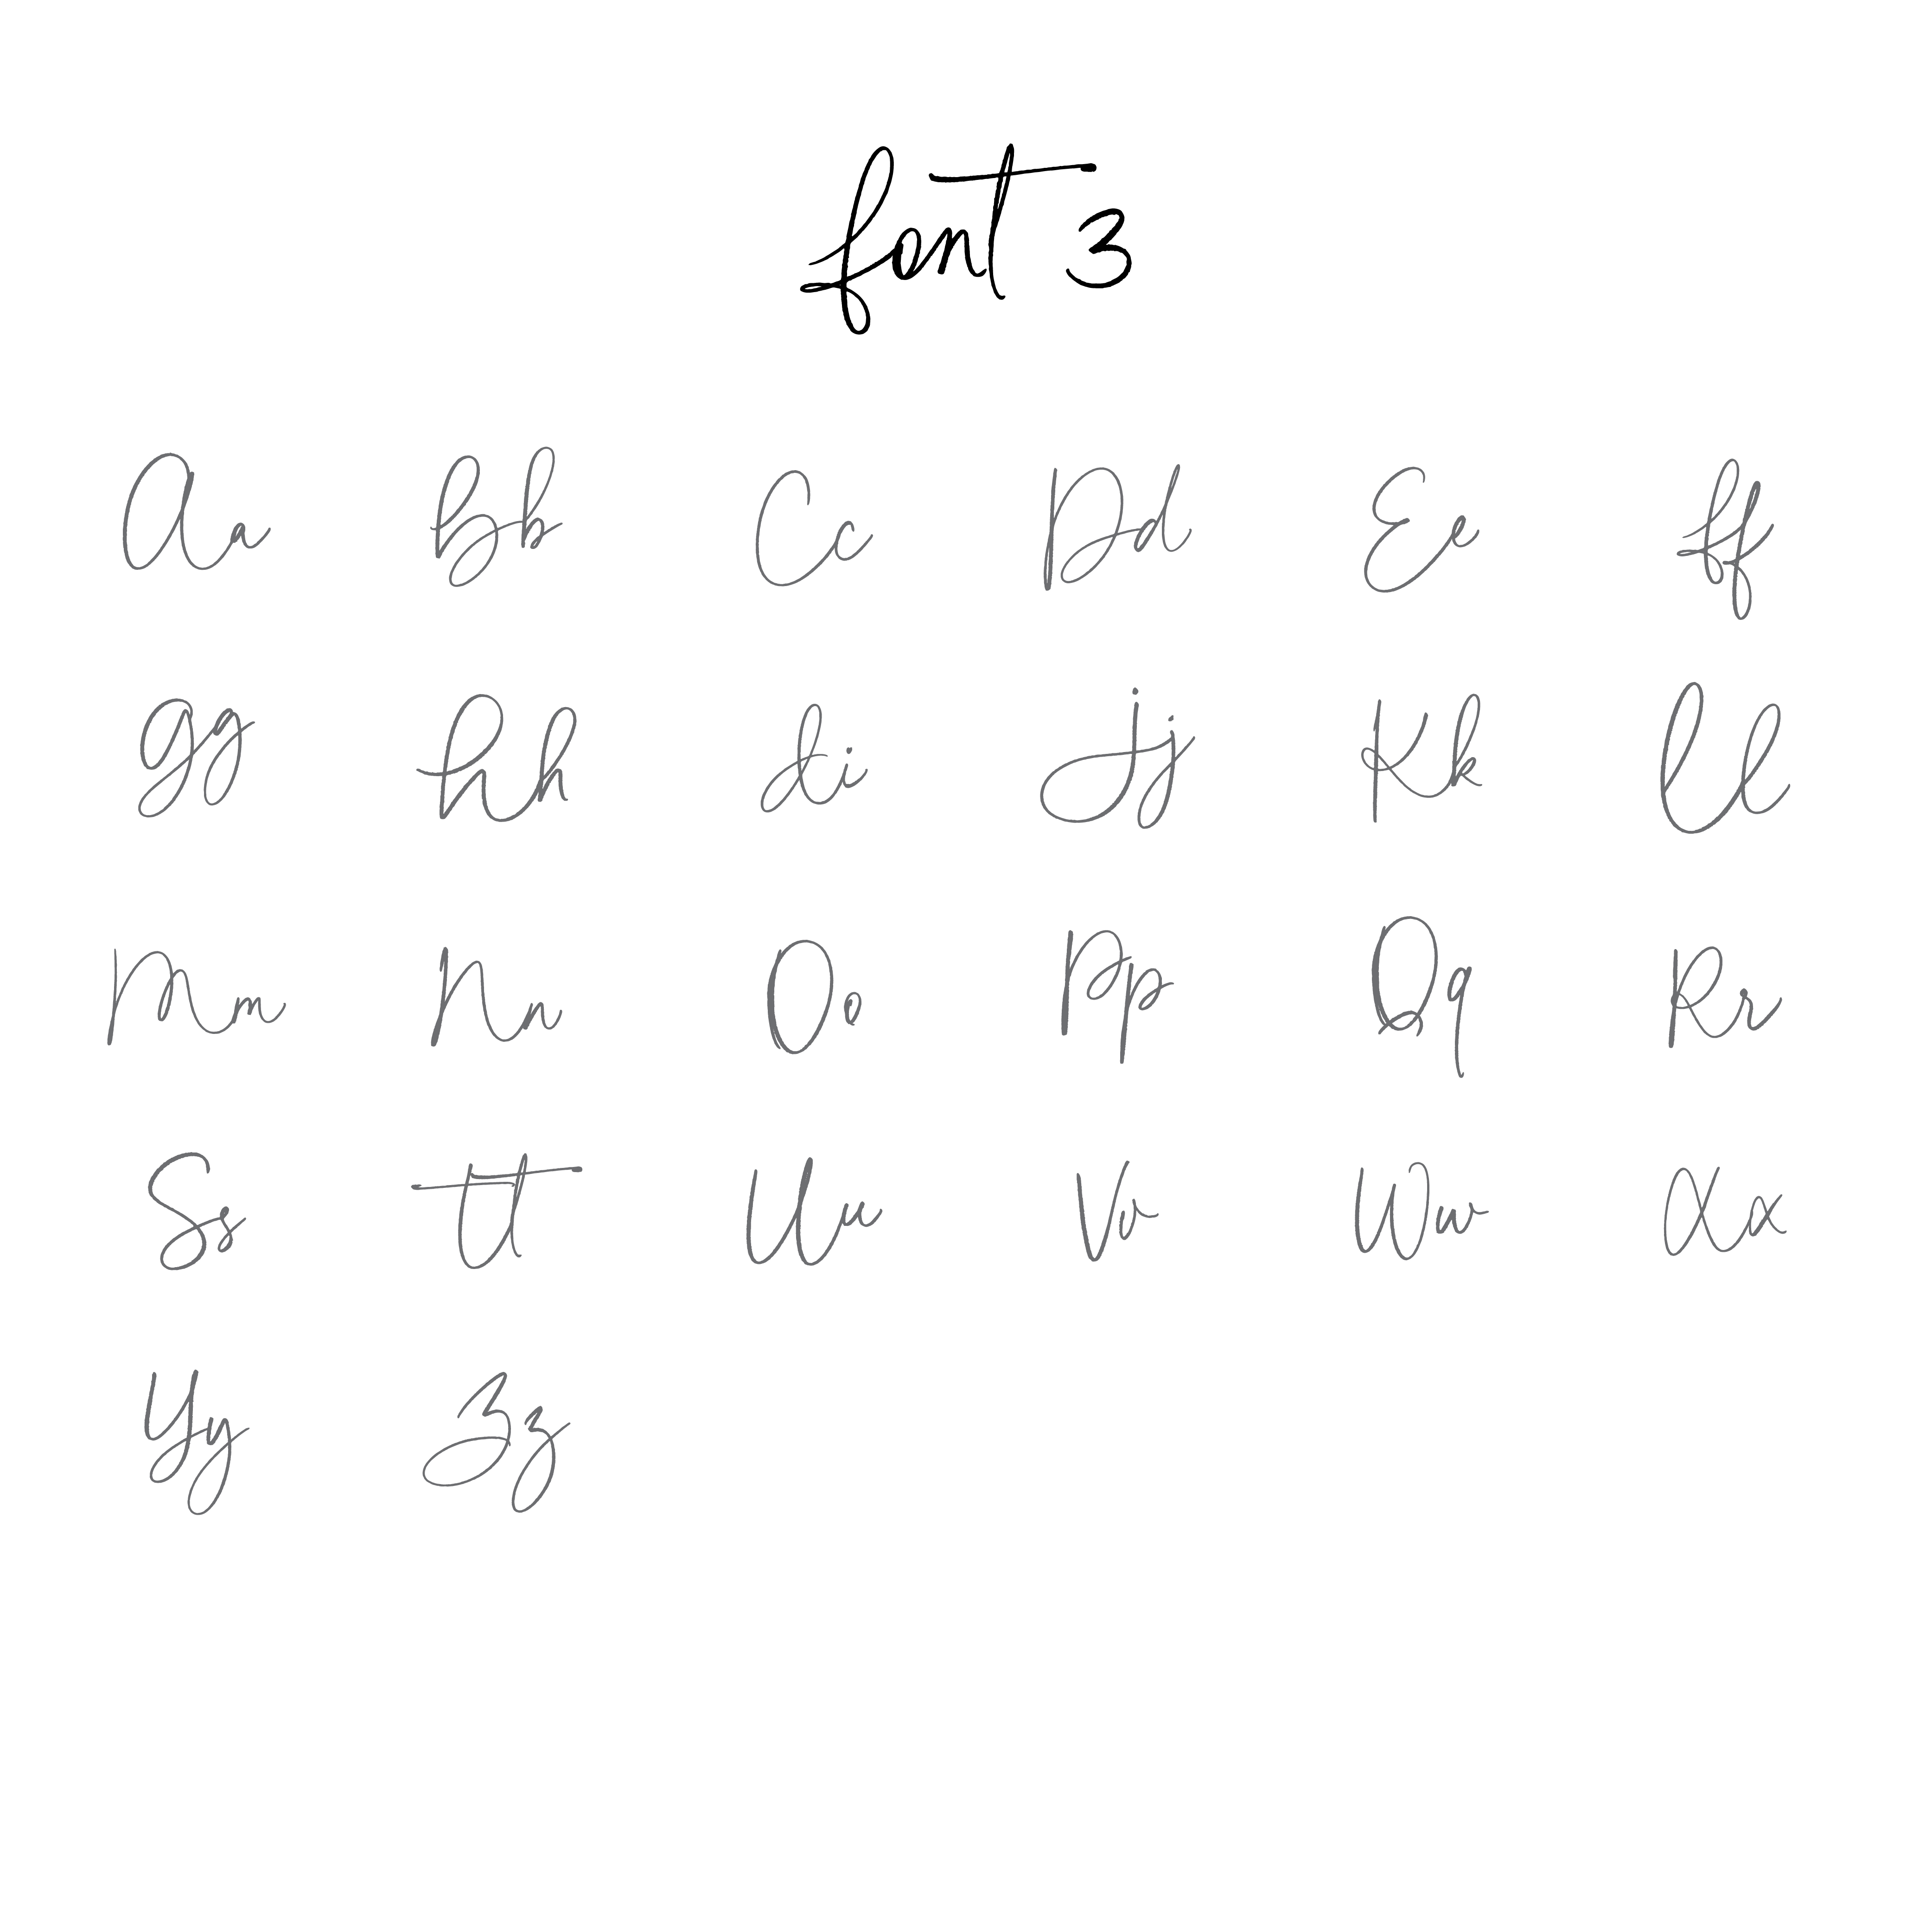 font 3
Aa Bb Cc Dd Ee Ff
Gg Hh Ii Jj Kk Ll
Mm Nn Oo Pp Qq Rr
Ss Tt Uu Vv Ww Xx
Yy Zz